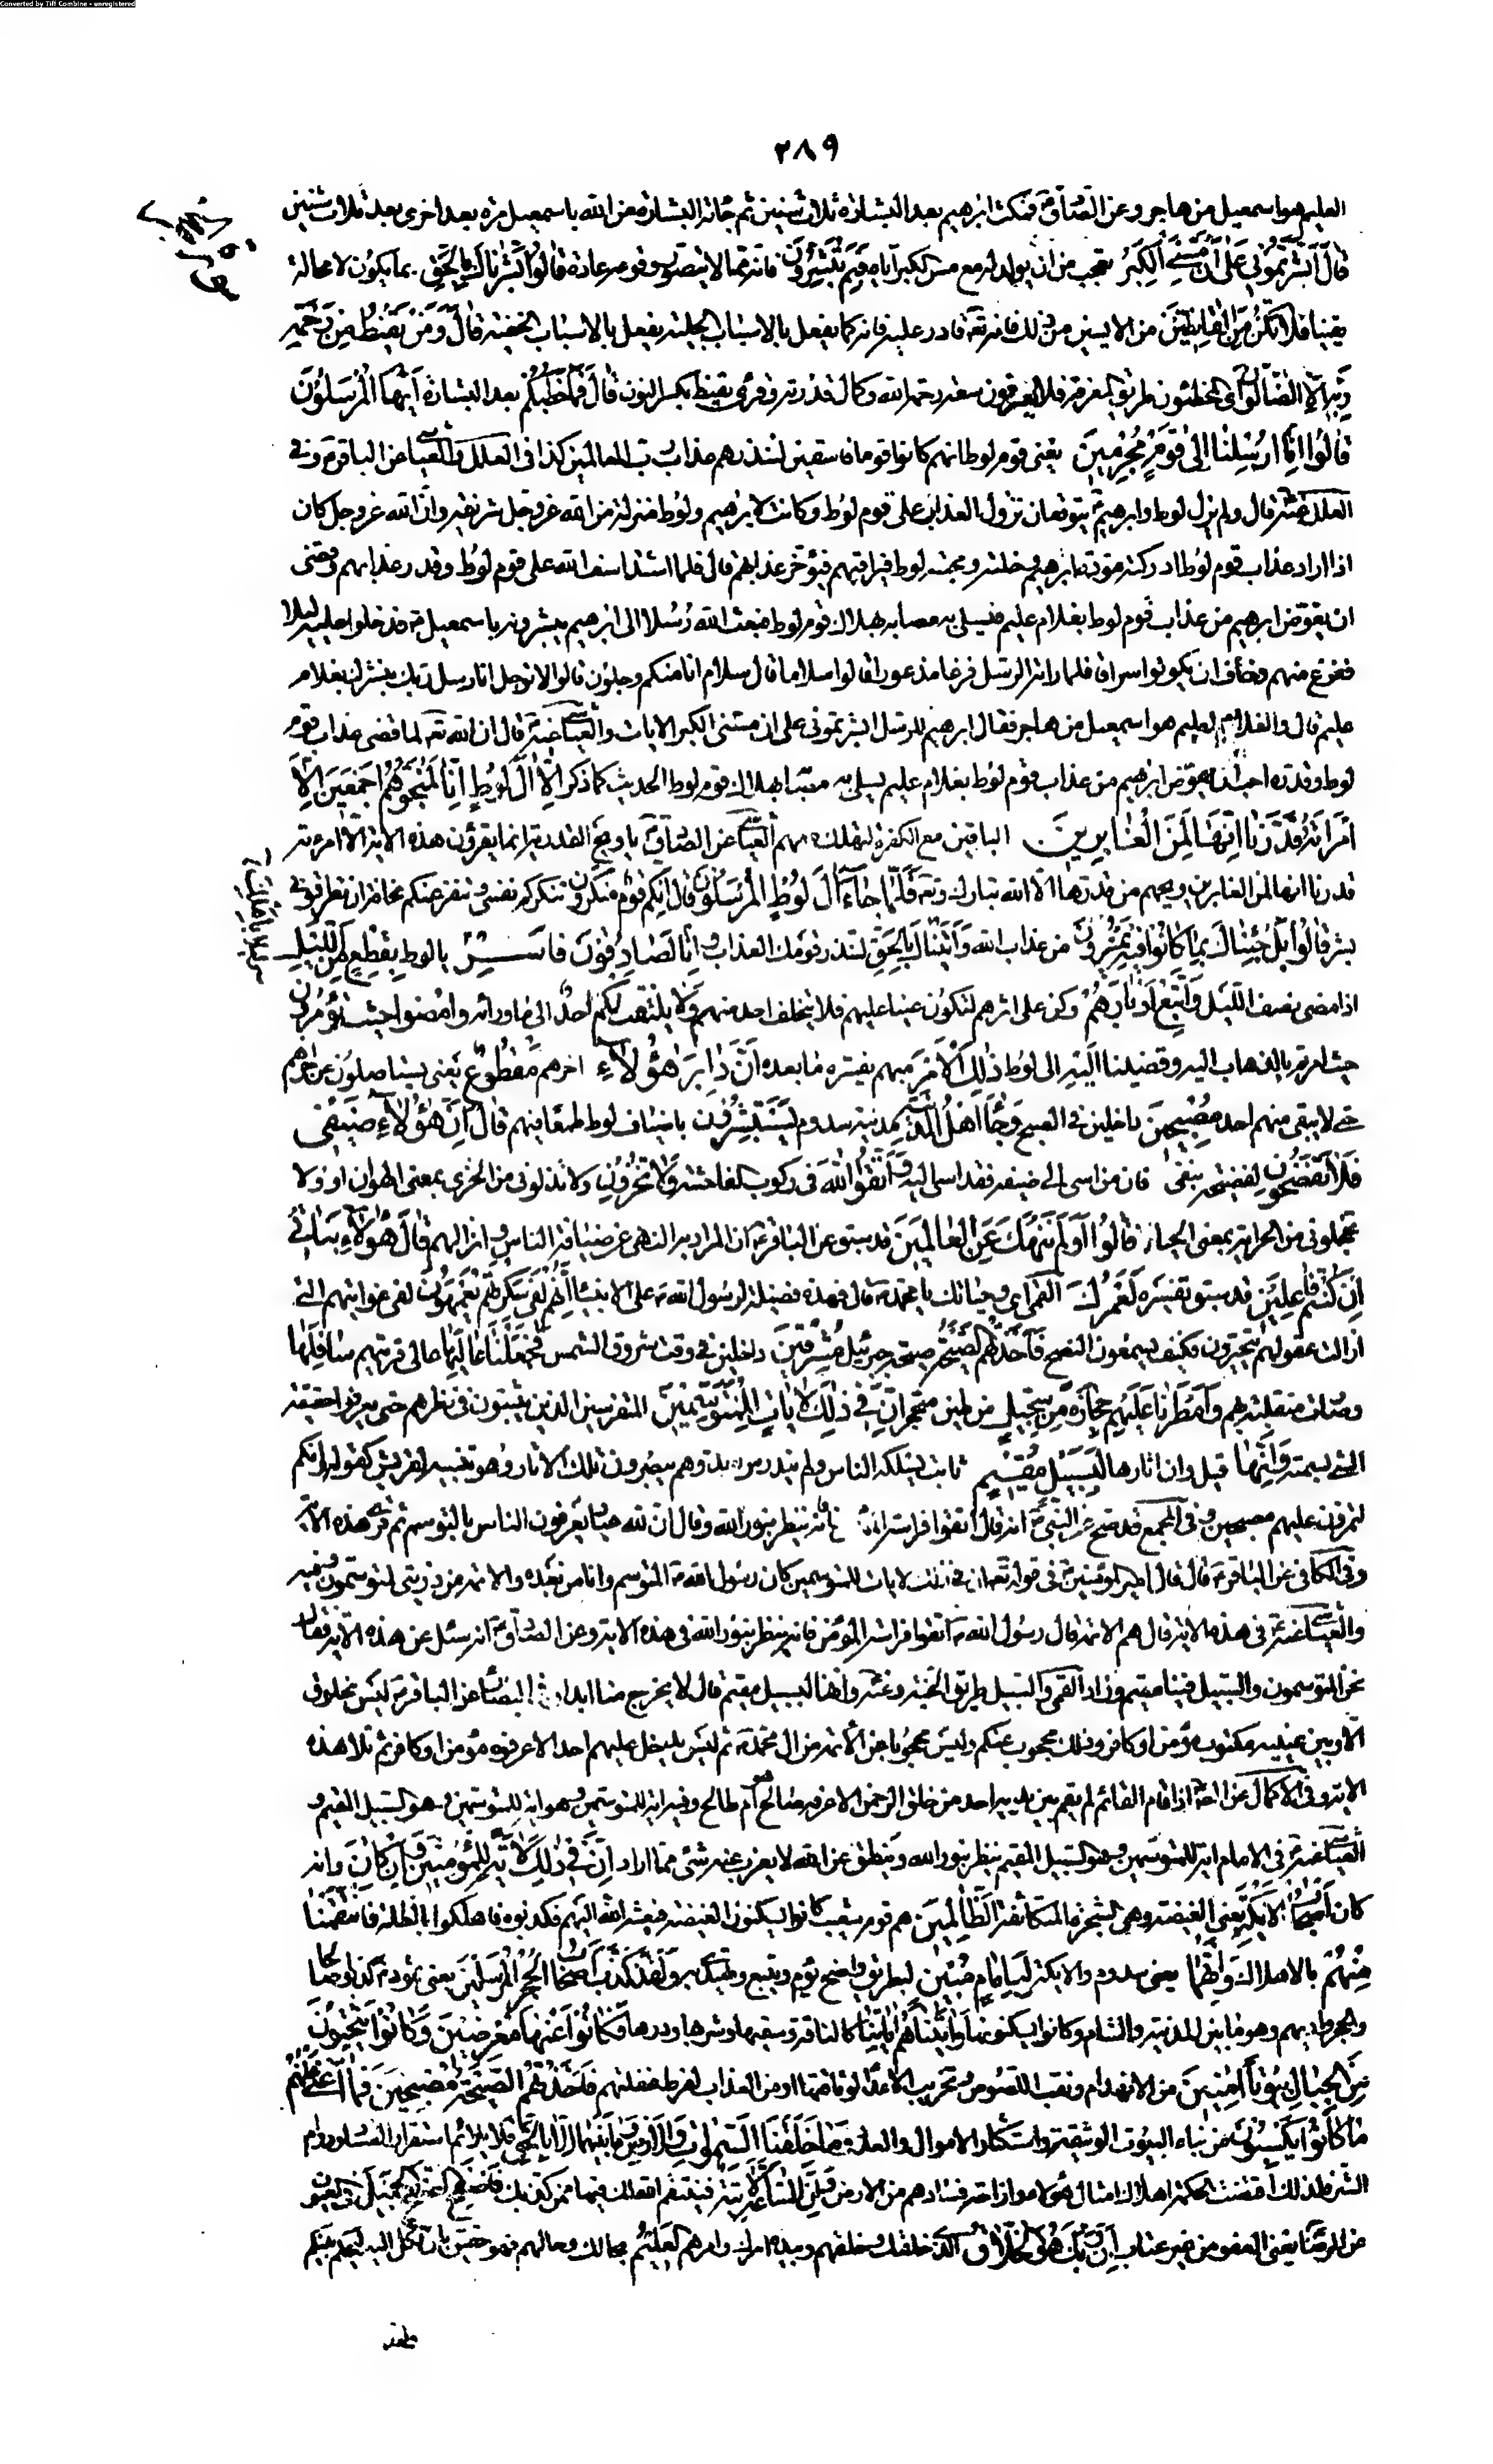 Converted by Tiff Combine - unregistered
٢٨٩
العليم هو اسمعيل من هاجر وعن الصادق ع فمكث ابرهيم بعد البشارة ثلاث سنين ثم جائته البشارة من الله باسمعيل مرة بعد اخرى بعد ثلاث سنين
قَالَ اَبَشَّرْتُمُونِي عَلَى اَنْ مَسَّنِيَ الْكِبَرُ تعجب من ان يولد له مع مس الكبر اياه فَبِمَ تُبَشِّرُونَ فانه مما لا يتصور وقوعه عادة قَالُوا بَشَّرْنَاكَ بِالْحَقِّ بما يكون لا محالة
يقينا فَلَا تَكُنْ مِنَ الْقَانِطِينَ من الايسين من ذلك فانه تعه قادر عليه فانه كما يفعل بالاسباب الجلية يفعل بالاسباب الخفية قَالَ وَمَنْ يَقْنَطُ مِنْ رَحْمَةِ
رَبِّهِ اِلَّا الضَّالُّونَ اى المخطئون طريق المعرفة فلا يعرفون سعة رحمة الله وكمال قدرته وقرئ يقنط بكسر النون قَالَ فَمَا خَطْبُكُمْ بعد البشارة اَيُّهَا الْمُرْسَلُونَ
قَالُوا اِنَّا اُرْسِلْنَا اِلَى قَوْمٍ مُجْرِمِينَ يعنى قوم لوط انهم كانوا قوما فاسقين لننذرهم عذاب رب العالمين كذا فى العلل والعياشى عن الباقر ع وفى
العلل عنه ع قال ولم يزل لوط وابرهيم يتوقعان نزول العذاب على قوم لوط وكانت لابرهيم ولوط منزلة من الله عزوجل شريفة وان الله عزوجل كان
اذا اراد عذاب قوم لوط ادركته مودة ابرهيم وخلته ومحبة لوط فيراقبهم فيؤخر عذابهم قال فلما اشتد اسف الله على قوم لوط وقدر عذابهم وقضى
ان يعوض ابرهيم من عذاب قوم لوط بغلام عليم فيسلى به مصابه بهلاك قوم لوط فبعث الله رسلا الى ابرهيم يبشرونه باسمعيل فدخلوا عليه ليلا
ففزع منهم وخاف ان يكونوا سراقا فلما راته الرسل فزعا مذعورا قالوا سلاما قال سلام انا منكم وجلون قالوا لا توجل انا رسل ربك نبشرك بغلام
عليم قال والغلام العليم هو اسمعيل من هاجر فقال ابرهيم للرسل ابشرتمونى على ان مسنى الكبر الايات والعياشى عنه ع قال ان الله تعه لما قضى عذاب قوم
لوط وقدره احب ان يعوض ابرهيم من عذاب قوم لوط بغلام عليم يسلى به مصابه بهلاك قوم لوط الحديث كما ذكر اِلَّا اٰلَ لُوطٍ اِنَّا لَمُنَجُّوهُمْ اَجْمَعِينَ اِلَّا
امْرَاَتَهُ قَدَّرْنَا اِنَّهَا لَمِنَ الْغَابِرِينَ الباقين مع الكفرة لتهلك معهم العياشى عن الصادق ع يا ويح القدرية انما يقرؤن هذه الاية الا امراته
قدرنا انها لمن الغابرين ويحهم من قدرها الا الله تبارك وتعه فَلَمَّا جَاءَ اٰلَ لُوطٍ الْمُرْسَلُونَ قَالَ اِنَّكُمْ قَوْمٌ مُنْكَرُونَ تنكركم نفسى وتنفر عنكم مخافة ان تطرقونى
بشر قَالُوا بَلْ جِئْنَاكَ بِمَا كَانُوا فِيهِ يَمْتَرُونَ من عذاب الله وَاَتَيْنَاكَ بِالْحَقِّ لتنذر قومك العذاب وَاِنَّا لَصَادِقُونَ فَاَسْرِ يا لوط بِقِطْعٍ مِنَ اللَّيْلِ
اذا مضى نصف الليل وَاتَّبِعْ اَدْبَارَهُمْ وكن على اثرهم لتكون عينا عليهم فلا يتخلف احد منهم وَلَا يَلْتَفِتْ مِنْكُمْ اَحَدٌ الى ما ورائه وَامْضُوا حَيْثُ تُؤْمَرُونَ
حيث امرتم بالذهاب اليه وَقَضَيْنَا اِلَيْهِ الى لوط ذٰلِكَ الْاَمْرَ مبهم يفسره ما بعده اَنَّ دَابِرَ هٰؤُلَاءِ اخرهم مَقْطُوعٌ يعنى يستاصلون عن اخرهم
حتى لا يبقى منهم احد مُصْبِحِينَ داخلين فى الصبح وَجَاءَ اَهْلُ الْمَدِينَةِ مدينة سدوم يَسْتَبْشِرُونَ باضياف لوط طمعا فيهم قَالَ اِنَّ هٰؤُلَاءِ ضَيْفِى
فَلَا تَفْضَحُونِ لفضيحة ضيفى فان من اسئ الى ضيفه فقد اسئ اليه وَاتَّقُوا اللهَ فى ركوب الفاحشة وَلَا تُخْزُونِ ولا تذلونى من الخزى بمعنى الهوان او ولا
تخجلونى من الخزاية بمعنى الحياء قَالُوا اَوَلَمْ نَنْهَكَ عَنِ الْعَالَمِينَ قد سبق عن الباقر ع ان المراد به النهى عن ضيافة الناس وانزالهم قَالَ هٰؤُلَاءِ بَنَاتِى
اِنْ كُنْتُمْ فَاعِلِينَ قد سبق تفسيره لَعَمْرُكَ القمى اى وحياتك يا محمد ص قال فهذه فضيلة لرسول الله ص على الانبياء اِنَّهُمْ لَفِى سَكْرَتِهِمْ يَعْمَهُونَ لفى غوايتهم التى
ازالت عقولهم يتحيرون فكيف يسمعون النصح فَاَخَذَتْهُمُ الصَّيْحَةُ صيحة جبرئيل مُشْرِقِينَ داخلين فى وقت شروق الشمس فَجَعَلْنَا عَالِيَهَا عالى قريتهم سَافِلَهَا
وصارت منقلبة بهم وَاَمْطَرْنَا عَلَيْهِمْ حِجَارَةً مِنْ سِجِّيلٍ من طين متحجر اِنَّ فِى ذٰلِكَ لَاٰيَاتٍ لِلْمُتَوَسِّمِينَ المتفرسين الذين يتثبتون فى نظرهم حتى يعرفوا حقيقة
الشئ بسمته وَاِنَّهَا قيل وان اثارها لَبِسَبِيلٍ مُقِيمٍ ثابت يسلكه الناس ولم يندرس بعد وهم يبصرون تلك الاثار وهو تنبيه لقريش كقوله انكم
لتمرون عليهم مصبحين وفى المجمع قد صح عن النبى ص انه قال اتقوا فراسة المؤمن فانه ينظر بنور الله وقال ان لله عبادا يعرفون الناس بالتوسم ثم قرء هذه الاية
وفى الكافى عن الباقر ع قال قال امير المؤمنين ع فى قوله تعه ان فى ذلك لايات للمتوسمين كان رسول الله ص المتوسم وانا من بعده والائمة من ذريتى المتوسمون وفيه
والعياشى عنه ع فى هذه الاية قال هم الائمة قال رسول الله ص اتقوا فراسة المؤمن فانه ينظر بنور الله فى هذه الاية وعن الصادق ع انه سئل عن هذه الاية فقال
نحن المتوسمون والسبيل فينا مقيم وزاد القمى والسبيل طريق الجنة وعنه وانها لبسبيل مقيم قال لا يخرج منا ابدا وفى البصائر عن الباقر ع ليس مخلوق
الا وبين عينيه مكتوب مؤمن او كافر وذلك محجوب عنكم وليس محجوبا عن الائمة من ال محمد ص ثم ليس يدخل عليهم احد الا عرفوه مؤمن او كافر ثم تلا هذه
الاية وفى الاكمال عن الصادق ع اذا قام القائم لم يقم بين يديه احد من خلق الرحمن الا عرفه صالح هو ام طالح وفيه اية للمتوسمين وهو اية للمتوسمين وهو السبيل المقيم و
العياشى عنه ع فى الامام اية للمتوسمين وهو السبيل المقيم ينظر بنور الله وينطق عن الله لا يعزب عنه شئ مما اراد اِنَّ فِى ذٰلِكَ لَاٰيَةً لِلْمُؤْمِنِينَ وَاِنْ كَانَ وانه
كان اَصْحَابُ الْاَيْكَةِ يعنى الغيضة وهى الشجرة المتكاثفة لَظَالِمِينَ هم قوم شعيب كانوا يسكنون الغيضة فبعثه الله اليهم فكذبوه فاهلكوا بالظلة فَانْتَقَمْنَا
مِنْهُمْ بالاهلاك وَاِنَّهُمَا يعنى سدوم والايكة لَبِاِمَامٍ مُبِينٍ لبطريق واضح يؤم ويتبع ويهتدى به وَلَقَدْ كَذَّبَ اَصْحَابُ الْحِجْرِ الْمُرْسَلِينَ يعنى ثمود كذبوا صالحا
والحجر واديهم وهو ما بين المدينة والشام وكانوا يسكنونها وَاٰتَيْنَاهُمْ اٰيَاتِنَا كالناقة وسقيها وشربها ودرها فَكَانُوا عَنْهَا مُعْرِضِينَ وَكَانُوا يَنْحِتُونَ
مِنَ الْجِبَالِ بُيُوتًا اٰمِنِينَ من الانهدام ونقب اللصوص وتخريب الاعداء لوثاقتها او من العذاب لفرط غفلتهم فَاَخَذَتْهُمُ الصَّيْحَةُ مُصْبِحِينَ فَمَا اَغْنَى عَنْهُمْ
مَا كَانُوا يَكْسِبُونَ من بناء البيوت الوثيقة واستكثار الاموال والعدد وَمَا خَلَقْنَا السَّمٰوَاتِ وَالْاَرْضَ وَمَا بَيْنَهُمَا اِلَّا بِالْحَقِّ فلا يلائم استمرار الفساد ودوام
الشر فلذلك اقتضت الحكمة اهلاك امثال هؤلاء وازاحة فسادهم من الارض وَاِنَّ السَّاعَةَ لَاٰتِيَةٌ فينتقم الله لك فيها ممن كذبك فَاصْفَحِ الصَّفْحَ الْجَمِيلَ فى العيون
عن الرضا ع يعنى العفو من غير عتاب اِنَّ رَبَّكَ هُوَ الْخَلَّاقُ الذى خلقك وخلقهم وبيده امرك وامرهم الْعَلِيمُ بحالك وحالهم فهو حقيق بان تكل اليه ليحكم بينكم